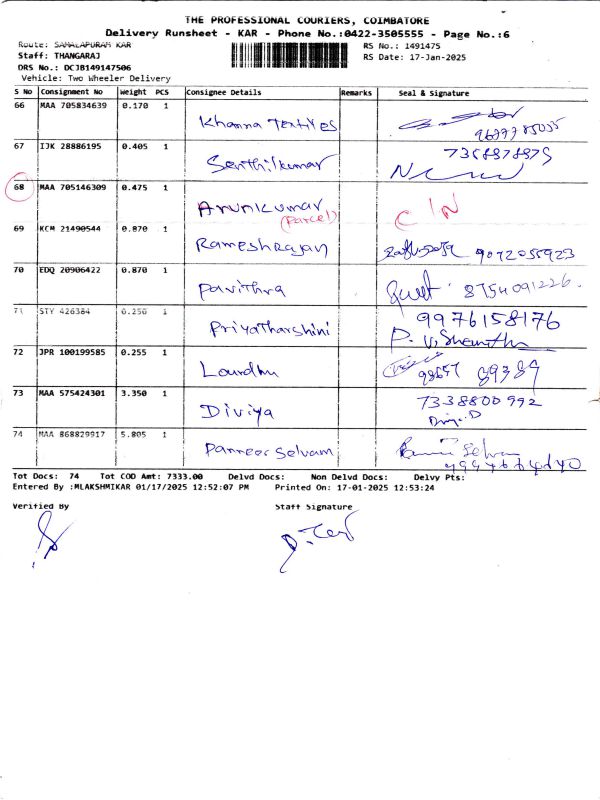 THE PROFESSIONAL COURIERS, COIMBATORE
Delivery Runsheet - KAR - Phone No.:0422-3505555 - Page No.:6
Route: SAMALAPURAM KAR
RS No.: 1491475
Staff: THANGARAJ
RS Date: 17-Jan-2025
DRS No.: DCJB149147506
Vehicle: Two Wheeler Delivery
S No Consignment No Weight PCS Consignee Details Remarks Seal & Signature
66 MAA 705834639 0.170 1
Khanna Textiles
67 IJK 28886195 0.405 1
Senthilkumar
68 MAA 705146309 0.475 1
Arunkumar
(Parcel)
C/N
69 KCM 21490544 0.870 1
Rameshrajan 9042055923
70 EDQ 20906422 0.870 1
Pavithra 8754091226
71 STY 426384 0.250 1
Priyatharshini 9976158176
72 JPR 100199585 0.255 1
Lourdhu 98657 89389
73 MAA 575424301 3.350 1
Diviya 7338800992
74 MAA 868829917 5.805 1
Panneer Selvam
Tot Docs: 74 Tot COD Amt: 7333.00 Delvd Docs: Non Delvd Docs: Delvy Pts:
Entered By :MLAKSHMIKAR 01/17/2025 12:52:07 PM Printed On: 17-01-2025 12:53:24
Verified By Staff Signature